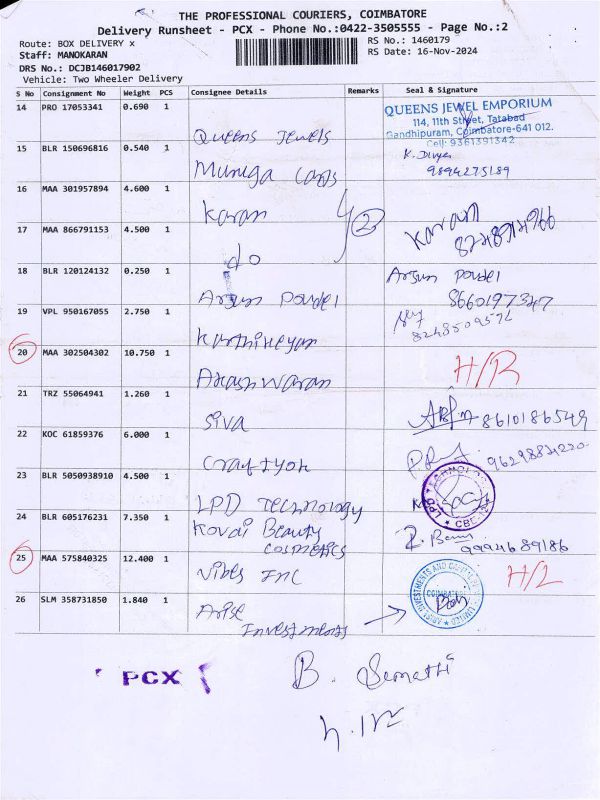 THE PROFESSIONAL COURIERS, COIMBATORE
Delivery Runsheet - PCX - Phone No.:0422-3505555 - Page No.:2
Route: BOX DELIVERY x
RS No.: 1460179
Staff: MANOKARAN
RS Date: 16-Nov-2024
DRS No.: DCJB146017902
Vehicle: Two Wheeler Delivery
S No Consignment No Weight PCS Consignee Details Remarks Seal & Signature
14 PRO 17053341 0.690 1 Queens Jewels
QUEENS JEWEL EMPORIUM
114, 11th Street, Tatabad
Gandhipuram, Coimbatore-641 012.
Cell: 9361391342
15 BLR 150696816 0.540 1 Muruga cards K. Divya
9894275189
16 MAA 301957894 4.600 1 Karan 2 Karan
17 MAA 866791153 4.500 1 do
18 BLR 120124132 0.250 1 Arjun poudel Arjun poudel
8660197347
19 VPL 950167055 2.750 1 Karthikeyan
20 MAA 302504302 10.750 1 Akash Waran H/R
21 TRZ 55064941 1.260 1 Siva 8610186549
22 KOC 61859376 6.000 1 Craftyok
23 BLR 5050938910 4.500 1 LPD Technology
24 BLR 605176231 7.350 1 Kovai Beauty
cosmetics
9994689186
25 MAA 575840325 12.400 1 Vibes INC H/L
26 SLM 358731850 1.840 1 Arise
Investments
PCX
B. Sumathi